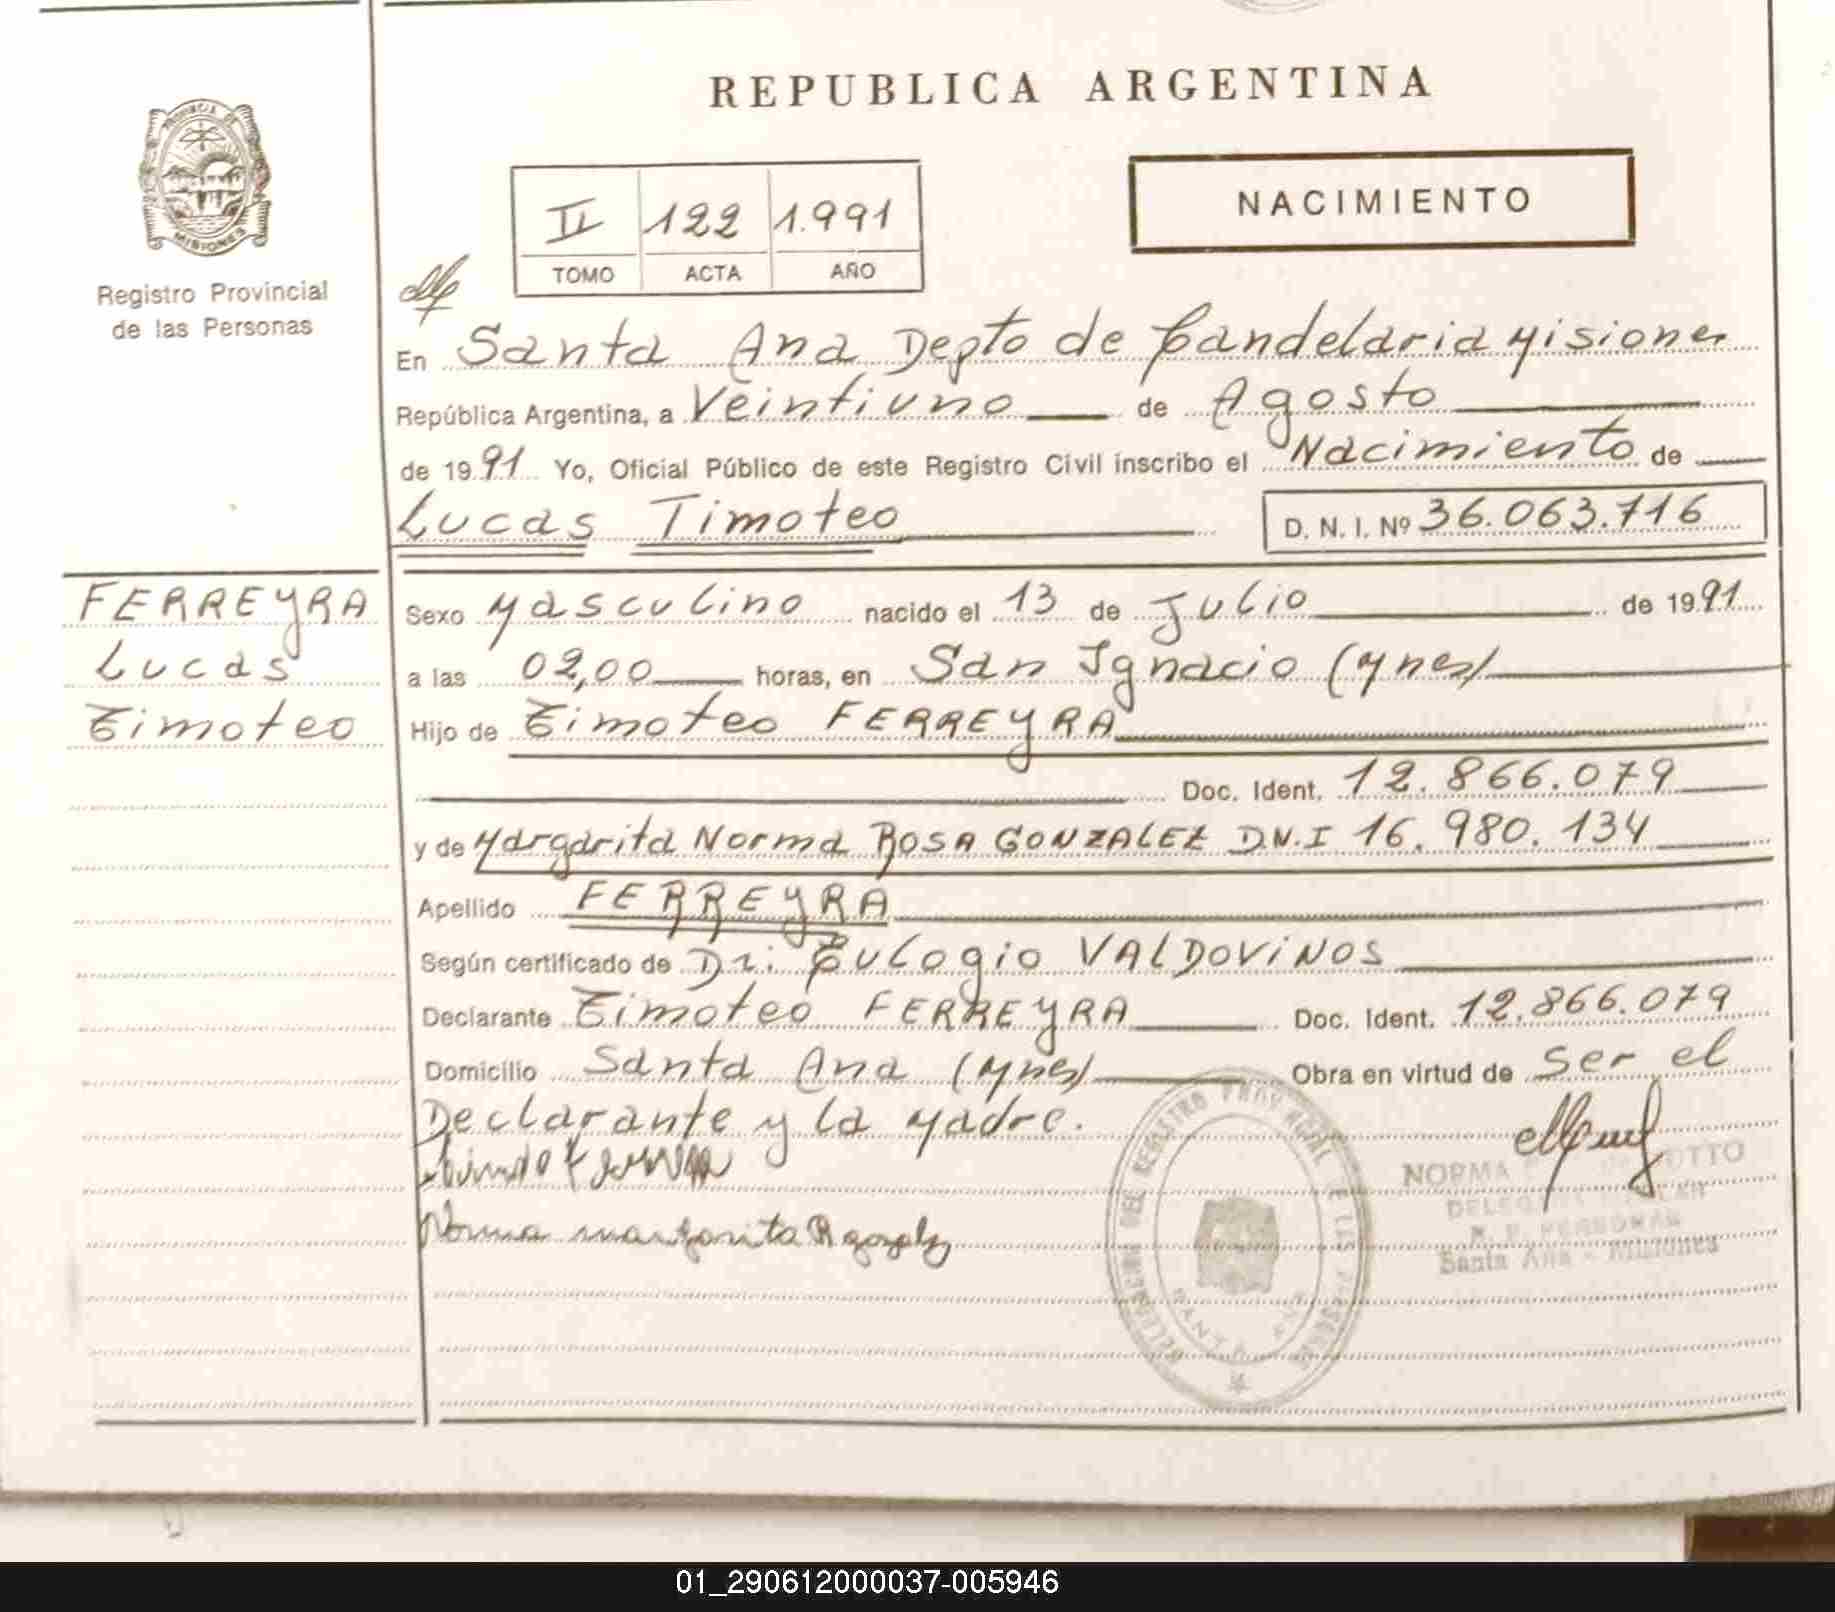 REPUBLICA ARGENTINA
PROVINCIA DE
MISIONES
Registro Provincial
de las Personas
NACIMIENTO
II 122 1.991
TOMO ACTA AÑO
En Santa Ana Depto de Candelaria Misiones
República Argentina, a Veintiuno de Agosto
de 1991 Yo, Oficial Público de este Registro Civil inscribo el Nacimiento de
Lucas Timoteo
D. N. I. Nº 36.063.716
FERREYRA
Lucas
Timoteo
Sexo Masculino nacido el 13 de Julio de 1991
a las 02,00 horas, en San Ignacio (Mnes)
Hijo de Timoteo FERREYRA
Doc. Ident. 12.866.079
y de Margarita Norma ROSA GONZALEZ D.N.I 16.980.134
Apellido FERREYRA
Según certificado de Dr: Eulogio VALDOViNOS
Declarante Timoteo FERREYRA Doc. Ident. 12.866.079
Domicilio Santa Ana (Mnes) Obra en virtud de Ser el
Declarante y la Madre.
Norma margarita R gonzalez
NORMA
Santa Ana - Misiones
01_290612000037-005946